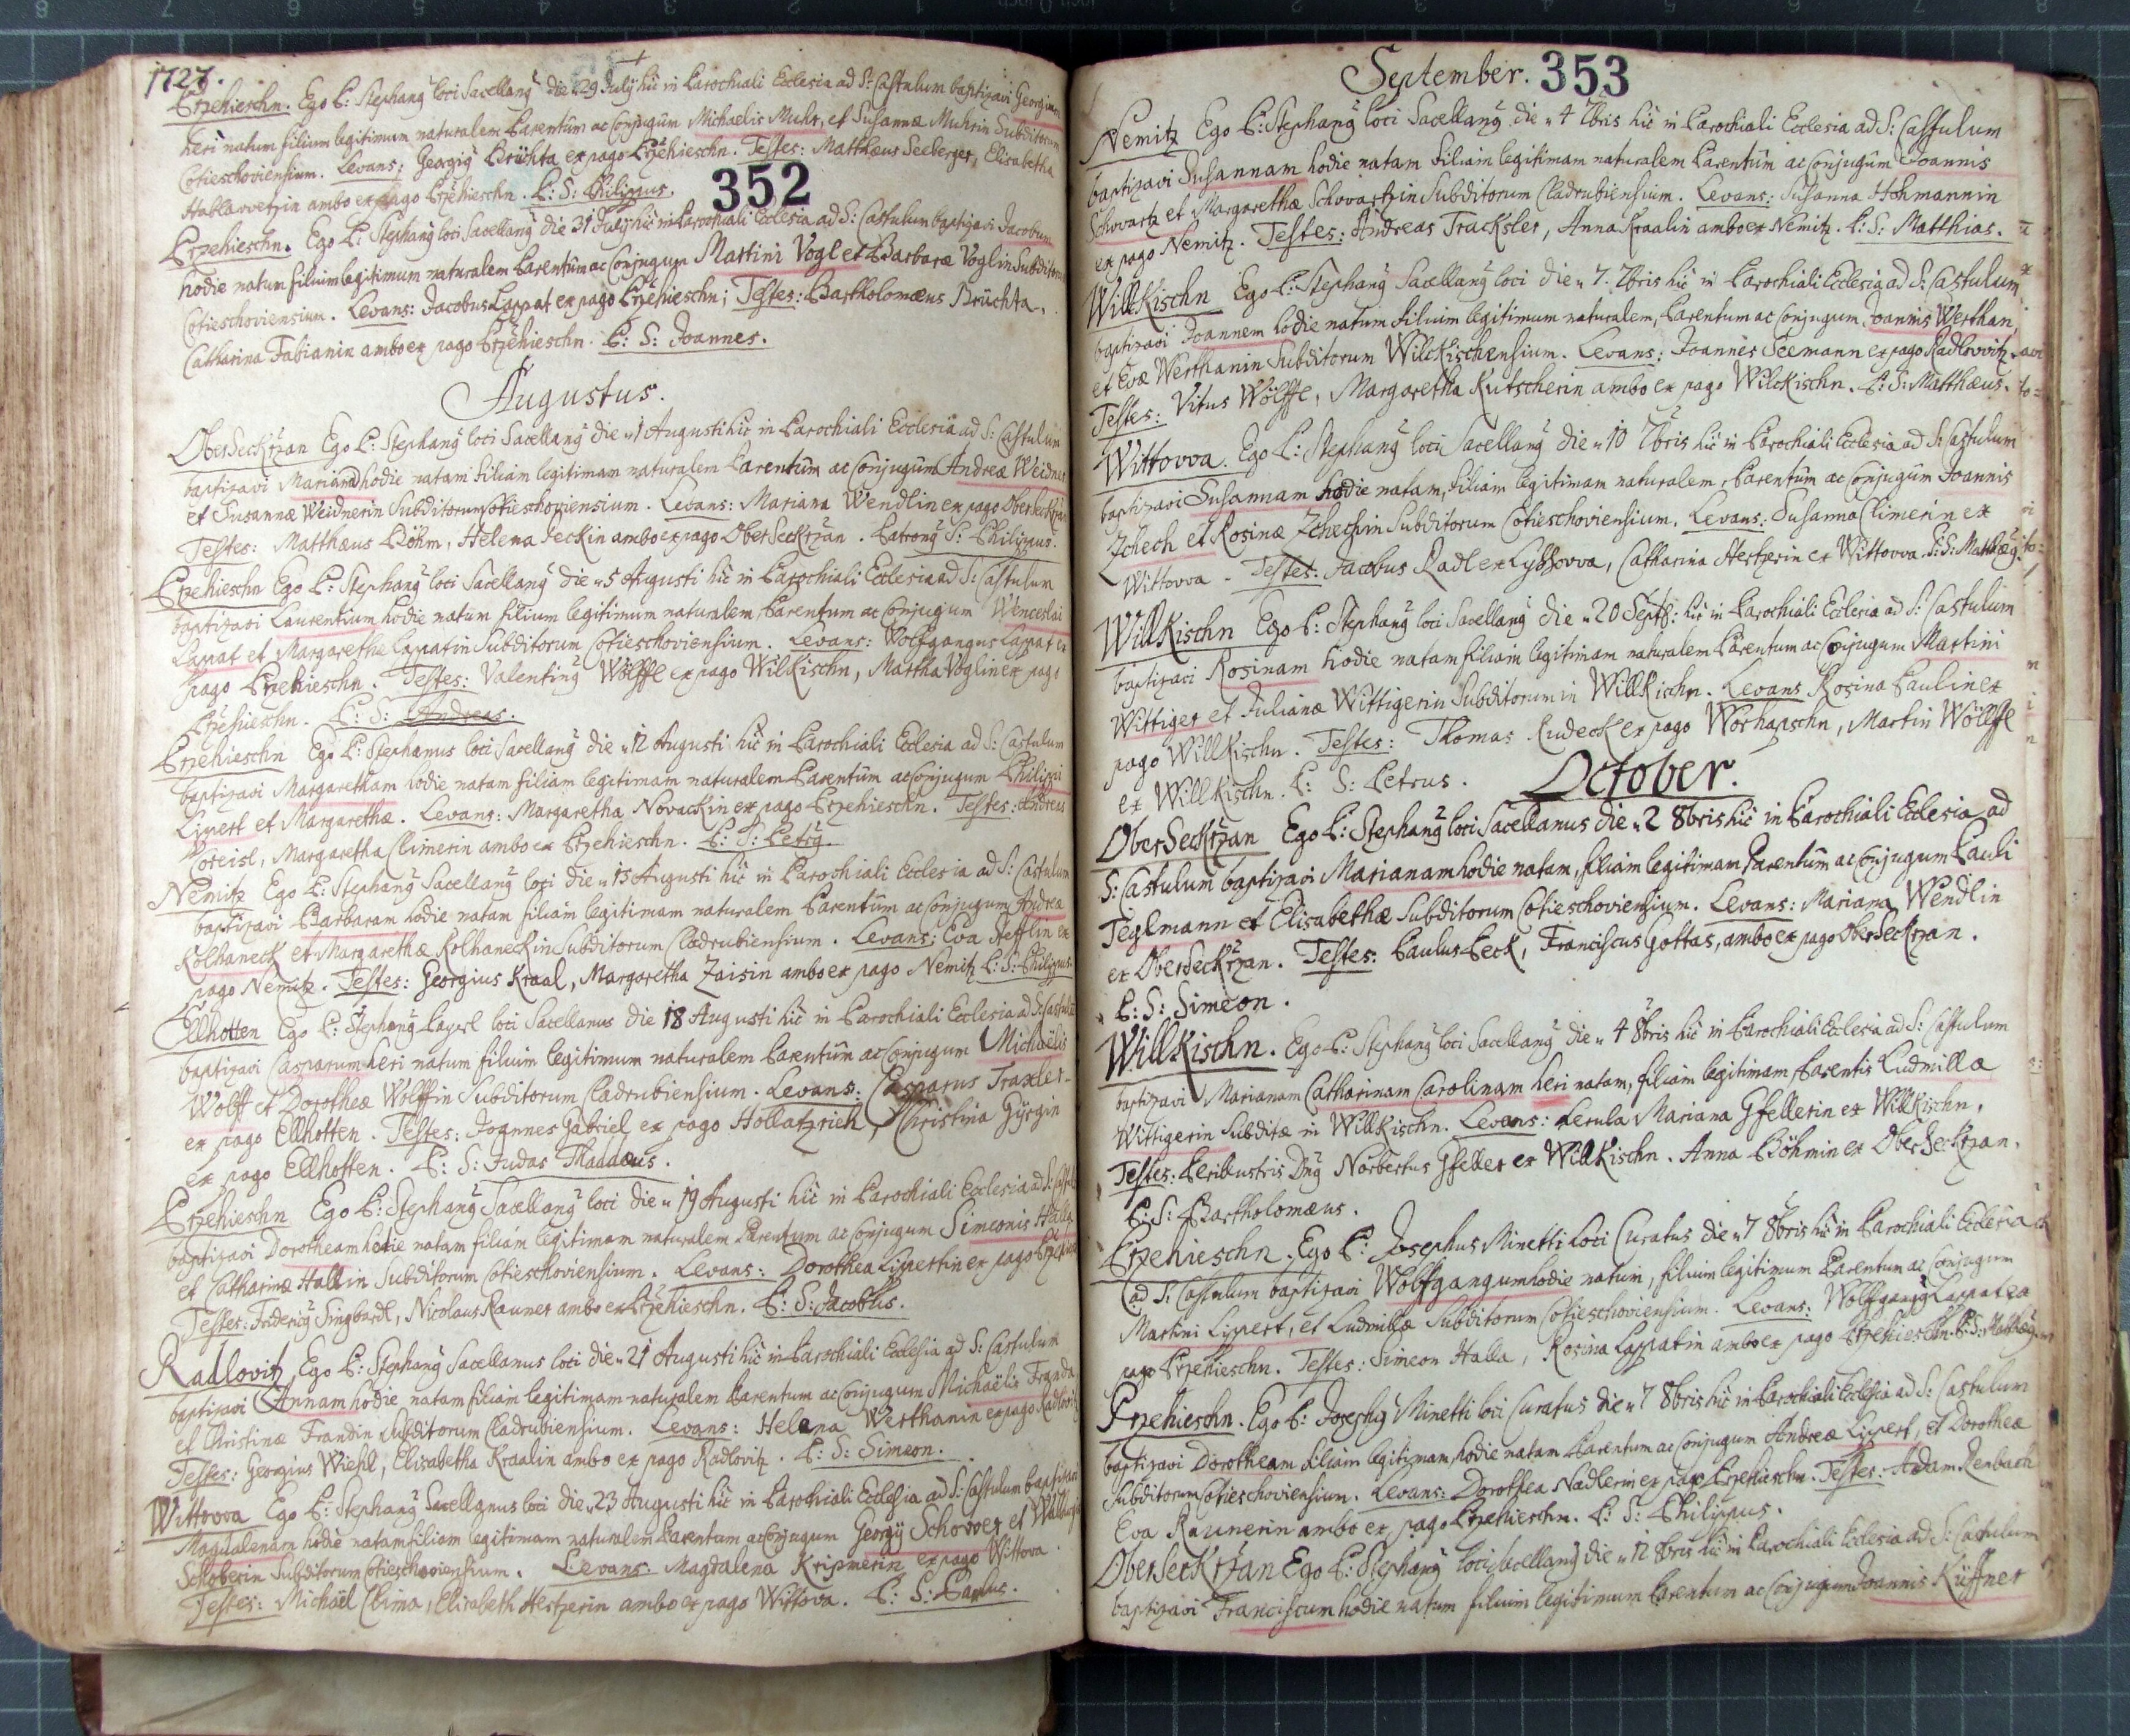 1727.
Przehieschn. Ego P: Stephang loci Sacellang die 29 July hic in Parochiali Ecclesia ad S: Castulum baptizavi Georgium
heri natum filium legitimum naturalem Parentum ac Conjugum Michaelis Muhr, et Susannæ Muhrin Subditorum
Cotieschoviensium. Levans: Georgig Brüchta ex pago Przehieschn. Testes: Matthæus Seeberger, Elisabetha
Hablawetzin ambo ex pago Przehieschn. P: S: Philippus.
352
Przehieschn. Ego P: Stephang loci Sacellang die 31 July hic in Parochiali Ecclesia ad S: Castulum baptizavi Jacobum
hodie natum filium legitimum naturalem Parentum ac Conjugum Martini Vogl et Barbaræ Voglin Subditorum
Cotieschoviensium. Levans: Jacobus Lappat ex pago Przehieschn; Testes: Bartholomæus Brüchta,
Catharina Fabianin ambo ex pago Przehieschn. P: S: Joannes.
Augustus.
OberSeckrzan Ego P: Stephang loci Sacellang die 1 Augusti hic in Parochiali Ecclesia ad S: Castulum
baptizavi Mariana hodie natam filiam legitimam naturalem Parentum ac Conjugum Andreæ Weidner
et Susannæ Weidnerin Subditorum Cotieschoviensium. Levans: Mariana Wendlin ex pago Oberseckrzan
Testes: Matthæus Böhm, Helena Jeckin ambo ex pago OberSeckrzan. Patrong S: Philippus.
Przehieschn Ego P: Stephang loci Sacellang die 5 Augusti hic in Parochiali Ecclesia ad S: Castulum
baptizavi Laurentium hodie natum filium legitimum naturalem Parentum ac Conjugum Wenceslai
Lappat et Margarethe Lappatin Subditorum Cotieschoviensium. Levans: Wolffgangus Lappat ex
pago Przehieschn. Testes: Valenting Wölffl ex pago Wilkischn, Martha Voglin ex pago
Przehieschn. P: S: Andreas.
Przehieschn Ego P: Stephanus loci Sacellang die 12 Augusti hic in Parochiali Ecclesia ad S: Castulum
baptizavi Margaretham hodie natam filiam legitimam naturalem Parentum ac Conjugum Philippi
Lippert et Margarethæ. Levans: Margaretha Novackin ex pago Przehieschn. Testes: Andreas
Poreisl, Margaretha Climerin ambo ex Przehieschn. P: S: Petrg.
Nemitz Ego P: Stephang Sacellang loci die 15 Augusti hic in Parochiali Ecclesia ad S: Castulum
baptizavi Barbaram hodie natam filiam legitimam naturalem Parentum ac Conjugum Andreæ
Kolhaneck et Margarethæ Kolhaneckin Subditorum Cladrubiensium. Levans: Eva Stefflin ex
pago Nemitz. Testes: Georgius Kraal, Margaretha Zaisin ambo ex pago Nemitz P: S: Philippus.
Ellhotten Ego P: Stephang Payerl loci Sacellanus die 18 Augusti hic in Parochiali Ecclesia ad S: Castulum
baptizavi Casparum heri natum filium legitimum naturalem Parentum ac Conjugum Michaëlis
Wolff et Dorotheæ Wolffin Subditorum Cladrubiensium. Levans: Casparus Traxler
ex pago Ellhotten. Testes: Joannes Gabriel ex pago Hollatzrieh, Christina Gÿrgin
ex pago Ellhotten. P: S: Judas Thaddæus.
Przehieschn Ego P: Stephang Sacellang loci die 19 Augusti hic in Parochiali Ecclesia ad S: Castulum
baptizavi Dorotheam hodie natam filiam legitimam naturalem Parentum ac Conjugum Simeonis Halla
et Catharinæ Hallin Subditorum Cotieschoviensium. Levans: Dorothea Lippertin ex pago Przehieschn
Testes: Fridericg Singbartl, Nicolaus Rauner ambo ex Przehieschn. P: S: Jacobus.
Radlovitz Ego P: Stephang Sacellanus loci die 21 Augusti hic in Parochiali Ecclesia ad S: Castulum
baptizavi Annam hodie natam filiam legitimam naturalem Parentum ac Conjugum Michaëlis Franda
et Christinæ Frandin Subditorum Cladrubiensium. Levans: Helena Werthanin ex pago Radlovitz
Testes: Georgius Wiehl, Elisabetha Kraalin ambo ex pago Radlovitz. P: S: Simeon.
Wittowa Ego P: Stephang Sacellanus loci die 23 Augusti hic in Parochiali Ecclesia ad S: Castulum baptizavi
Magdalenam hodie natam filiam legitimam naturalem Parentum ac Conjugum Georgÿ Schower et Walburgæ
Schoberin Subditorum Cotieschoviensium. Levans: Magdalena Krismerin ex pago Wittova.
Testes: Michaël Clima, Elisabeth Hertzerin ambo ex pago Wittova. P: S: Paulus.
September. 353
Nemitz Ego P: Stephang loci Sacellang die 4 7bris hic in Parochiali Ecclesia ad S: Castulum
baptizavi Susannam hodie natam filiam legitimam naturalem Parentum ac Conjugum Joannis
Schwartz et Margarethæ Schwartzin Subditorum Cladrubiensium. Levans: Susanna Hohmannin
ex pago Nemitz. Testes: Andreas Tracksler, Anna Kraalin ambo ex Nemitz. P: S: Matthias.
WillKischn Ego P: Stephang Sacellang loci die 7. 7bris hic in Parochiali Ecclesia ad S: Castulum
baptizavi Joannem hodie natum filium legitimum naturalem, Parentum ac Conjugum Joannis Werthan,
et Evæ Werthanin Subditorum WilcKischensium. Levans: Joannes Seemann ex pago Radlowitz.
Testes: Vitus Wölffl, Margaretha Kutscherin ambo ex pago Wilckischn. P: S: Matthæus.
Wittowa. Ego P: Stephang loci Sacellang die 10 7bris hic in Parochiali Ecclesia ad S: Castulum
baptizavi Susannam hodie natam, filiam legitimam naturalem, Parentum ac Conjugum Joannis
Zchech et Rosinæ Zchechin Subditorum Cotieschoviensium. Levans: Susanna Climerin ex
Wittowa. Testes: Jacobus Radl ex Lyssowa, Catharina Hertzerin ex Wittowa. P: S: Matthæg.
WillKischn Ego P: Stephang loci Sacellang die 20 Sept: hic in Parochiali Ecclesia ad S: Castulum
baptizavi Rosinam hodie natam filiam legitimam naturalem Parentum ac Conjugum Martini
Wittiger et Julianæ Wittigerin Subditorum in WillKischn. Levans Rosina Paulin ex
pago WillKischn. Testes: Thomas Rudeck ex pago Worhapschn, Martin Wölffl
ex WillKischn. P: S: Petrus.
October.
OberSeckrzan Ego P: Stephang loci Sacellanus die 2 8bris hic in Parochiali Ecclesia ad
S: Castulum baptizavi Marianam hodie natam, filiam legitimam Parentum ac Conjugum Pauli
Teglmann et Elisabethæ Subditorum Cotieschoviensium. Levans: Mariana Wendlin
ex OberSeckrzan. Testes: Paulus Peck, Franciscus Gottas, ambo ex pago OberSeckrzan.
P: S: Simeon.
WillKischn. Ego P: Stephang loci Sacellang die 4 8bris hic in Parochiali Ecclesia ad S: Castulum
baptizavi Marianam Catharinam Carolinam heri natam, filiam legitimam Parentis Ludmilla
Wittigerin Subditæ in WillKischn. Levans: Mariana Gfellerin ex WillKischn.
Testes: Perillustris Dng Norbertus Gfeller ex WillKischn. Anna Böhmin ex OberSeckrzan.
P: S: Bartholomæus.
Przehieschn. Ego P: Josephus Minetti loci Curatus die 7 8bris hic in Parochiali Ecclesia
ad S: Castulum baptizavi Wolffgangum hodie natum, filium legitimum Parentum ac Conjugum
Martini Lippert, et Ludmillæ Subditorum Cotieschoviensium. Levans: Wolffgangg Lappat ex
pago Przehieschn. Testes: Simeon Halla, Rosina Lappatin ambo ex pago Przehieschn. P: S: Matthæg
Przehieschn. Ego P: Josephg Minetti loci Curatus die 7 8bris hic in Parochiali Ecclesia ad S: Castulum
baptizavi Dorotheam filiam legitimam, hodie natam Parentum ac Conjugum Andreæ Lippert, et Dorotheæ
Subditorum Cotieschoviensium. Levans: Dorothea Nædlerin ex pago Przehieschn. Testes: Adam Renbach
Eva Raunerin ambo ex pago Przehieschn. P: S: Philippus.
OberSecKržan Ego P: Stephang loci Sacellang die 12 8bris hic in Parochiali Ecclesia ad S: Castulum
baptizavi Franciscum hodie natum filium legitimum Parentum ac Conjugum Joannis Küffner